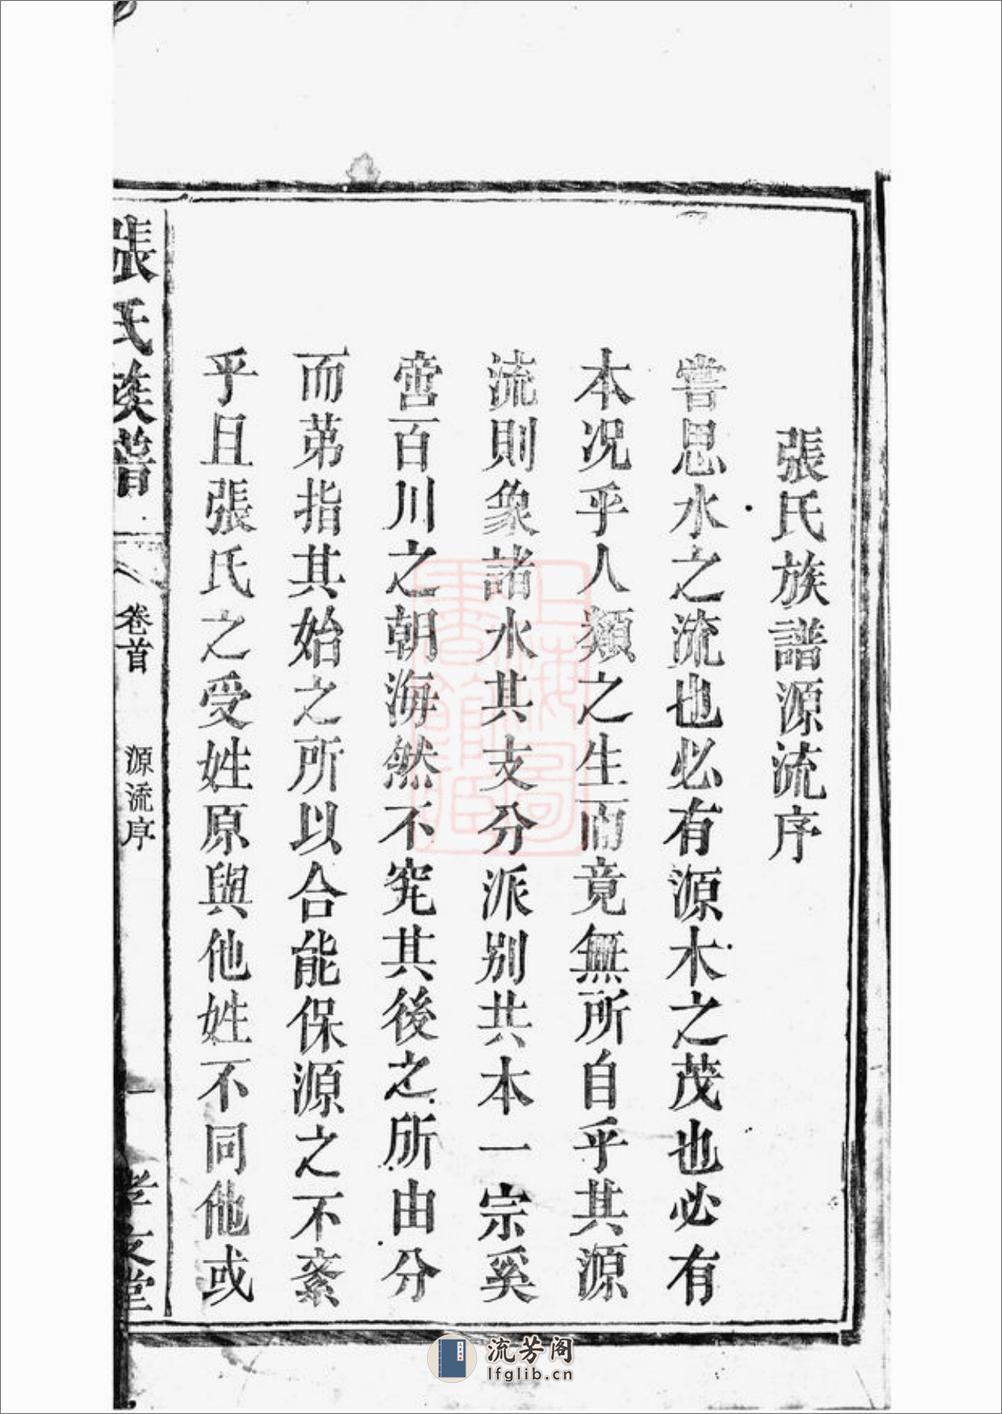 張氏族譜源流序
嘗思水之流也必有源木之茂也必有
本况乎人類之生而竟無所自乎其源
流則象諸水其支分派别共本一宗奚
啻百川之朝海然不究其後之所由分
而苐指其始之所以合能保源之不紊
乎且張氏之受姓原與他姓不同他或
張氏族譜
卷首
源流序
一
孝友堂
流芳阁
lfglib.cn